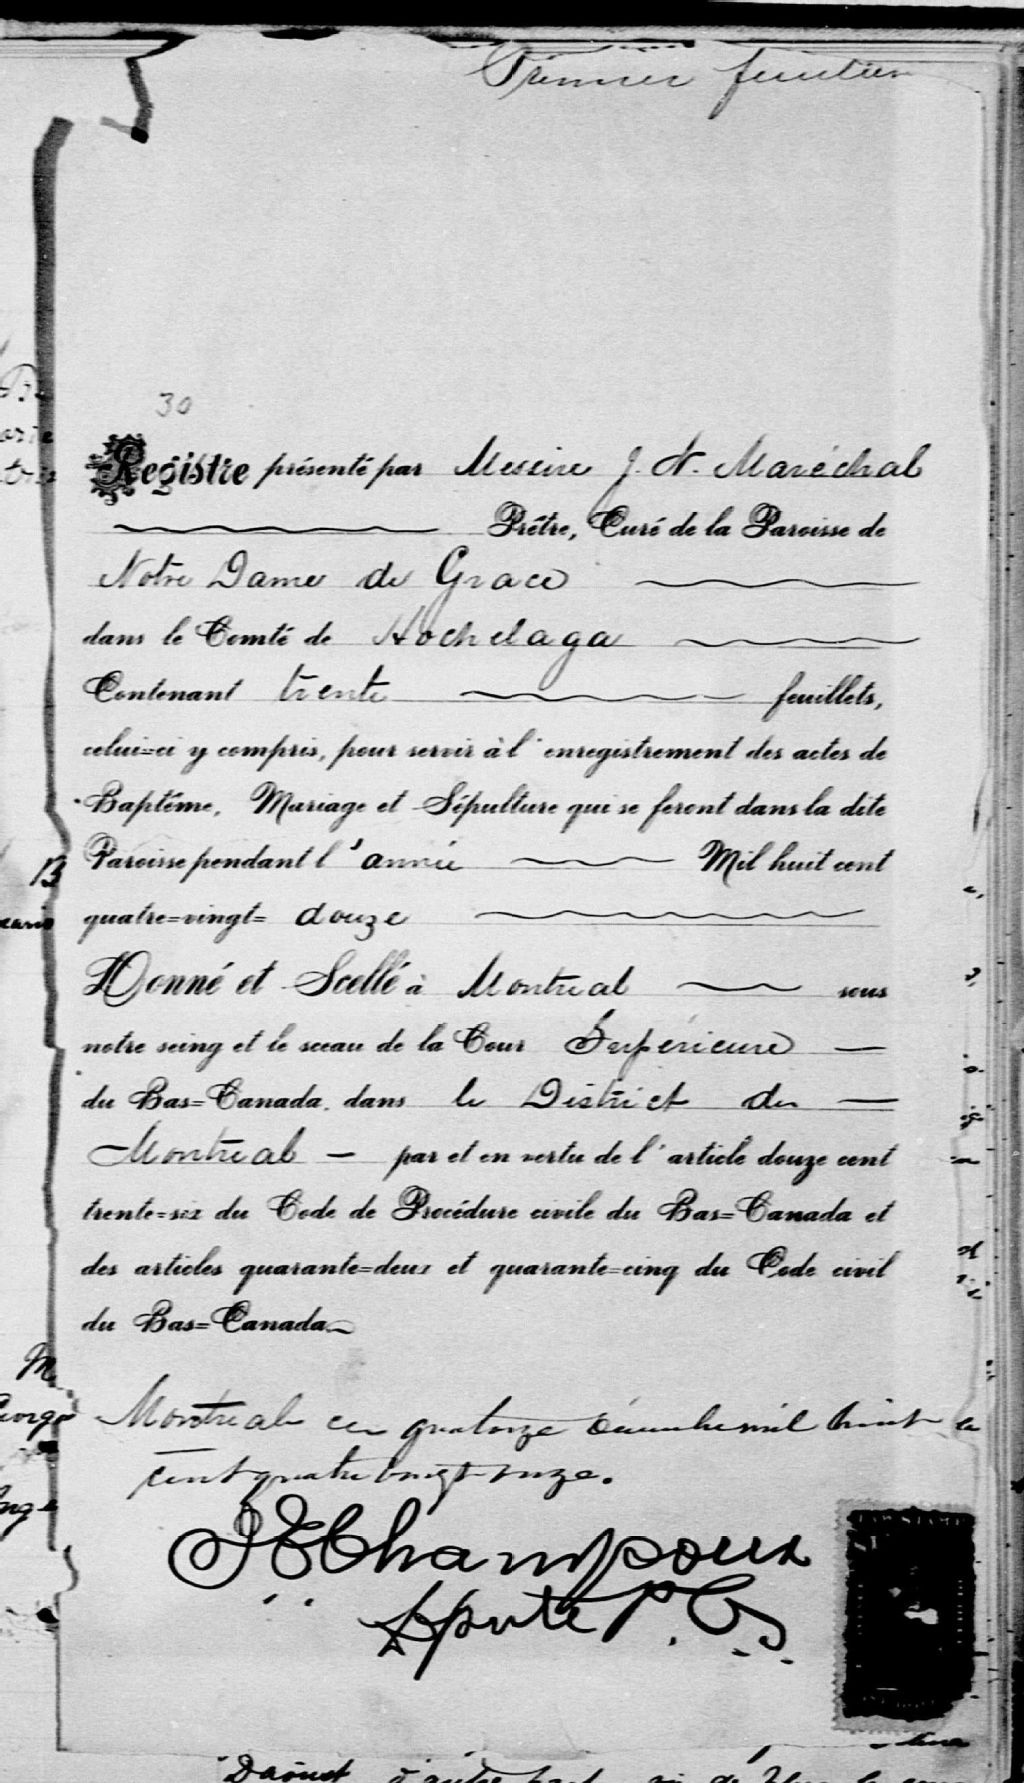 Premier feuillet
30
Registre présenté par Messire J. N. Maréchal
Prêtre, Curé de la Paroisse de
Notre Dame de Grace
dans le Comté de Hochelaga
Contenant trente feuillets,
celui=ci y compris, pour servir à l'enregistrement des actes de
Baptême, Mariage et Sépulture qui se feront dans la dite
Paroisse pendant l'année Mil huit cent
quatre=vingt= douze
Donné et Scellé à Montreal sous
notre seing et le sceau de la Cour Supérieure
du Bas=Canada, dans le District de
Montreal par et en vertu de l'article douze cent
trente=six du Code de Procédure civile du Bas=Canada et
des articles quarante=deux et quarante=cinq du Code civil
du Bas=Canada
Montreal ce quatorze décembre mil huit
cent quatre vingt onze.
Champoux
Dpute P. C. S.
Daoust d'autre part